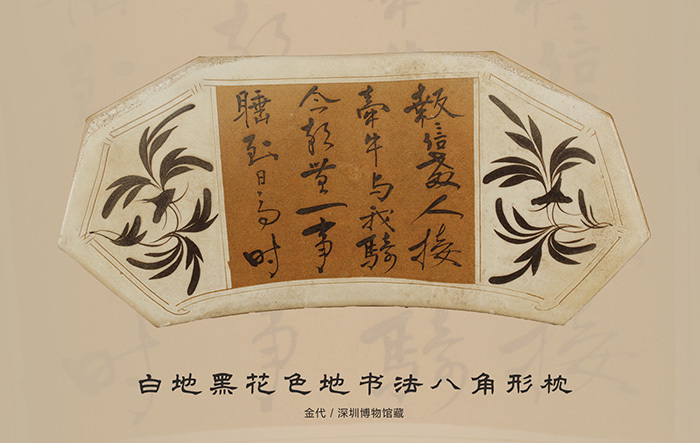 報信教人接
牽牛与我騎
今朝無一事
睡到日高时
白地黑花色地书法八角形枕
金代 / 深圳博物馆藏